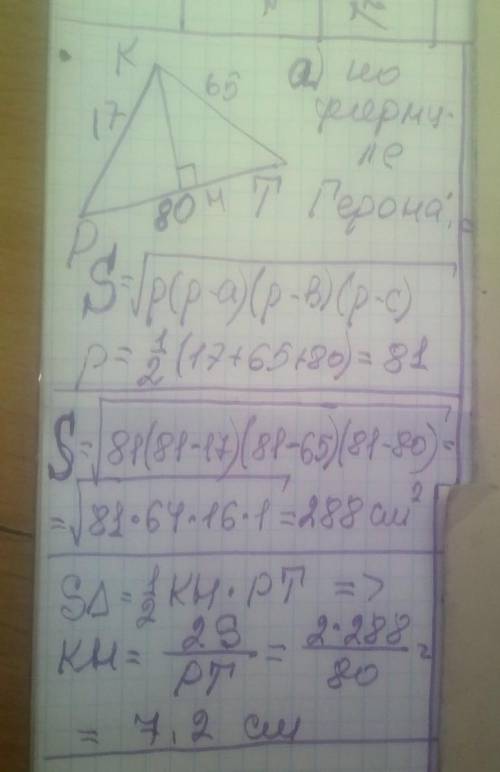 K
65
17
80
H
T
P
а) по
формул
ле
Герона:
S=√p(p-a)(p-в)(p-c)
p=1/2(17+65+80)=81
S=√81(81-17)(81-65)(81-80)=
=√81·64·16·1=288 см²
SΔ=1/2KH·PT =>
KH=2S/PT=2·288/80=
= 7,2 см